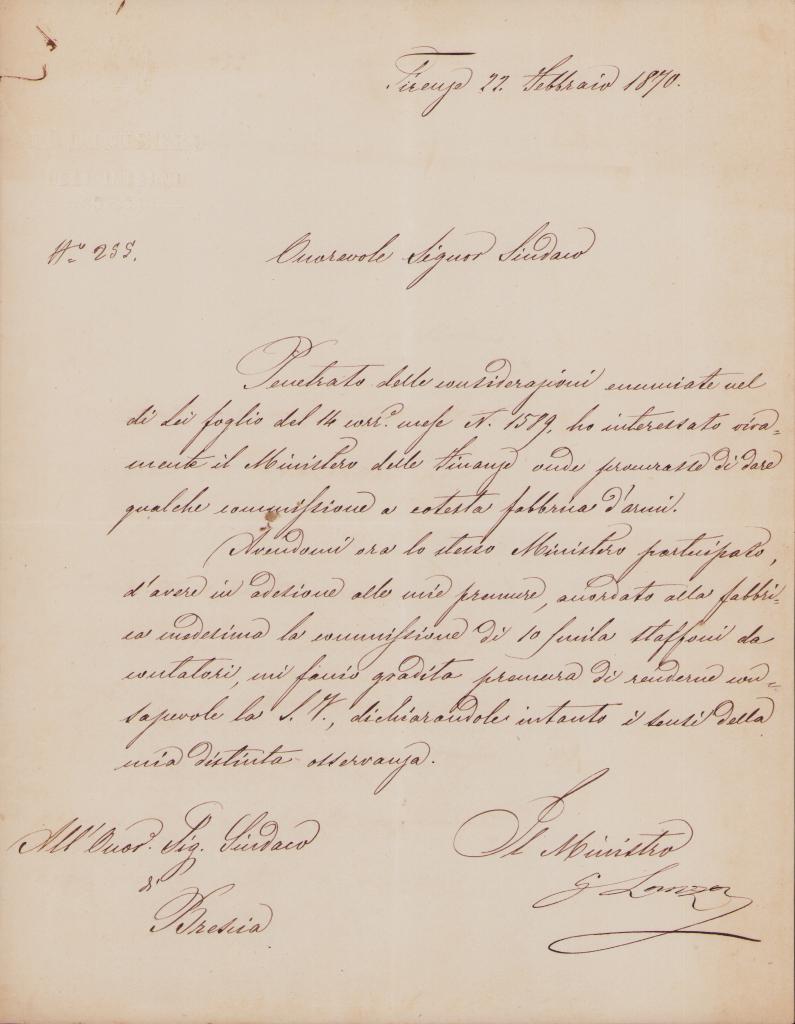 Firenze 22. Febbraio 1870.
N.º 255.
Onorevole Signor Sindaco
Penetrato delle considerazioni enunciate nel
di Lei foglio del 14 corr.e mese N. 1589, ho interessato viva=
mente il Ministero delle Finanze onde procurasse di dare
qualche commissione a cotesta fabbrica d'armi.
Avendomi ora lo stesso Ministero partecipato,
d'avere in adesione alle mie premure, accordato alla fabbri=
ca medesima la commissione di 10 mila staffoni da
contatori, mi faccio gradita premura di renderne con=
sapevole la S. V., dichiarandole intanto i sensi della
mia distinta osservanza.
All'Onor. Sig. Sindaco
di
Brescia
Il Ministro
G Lanza